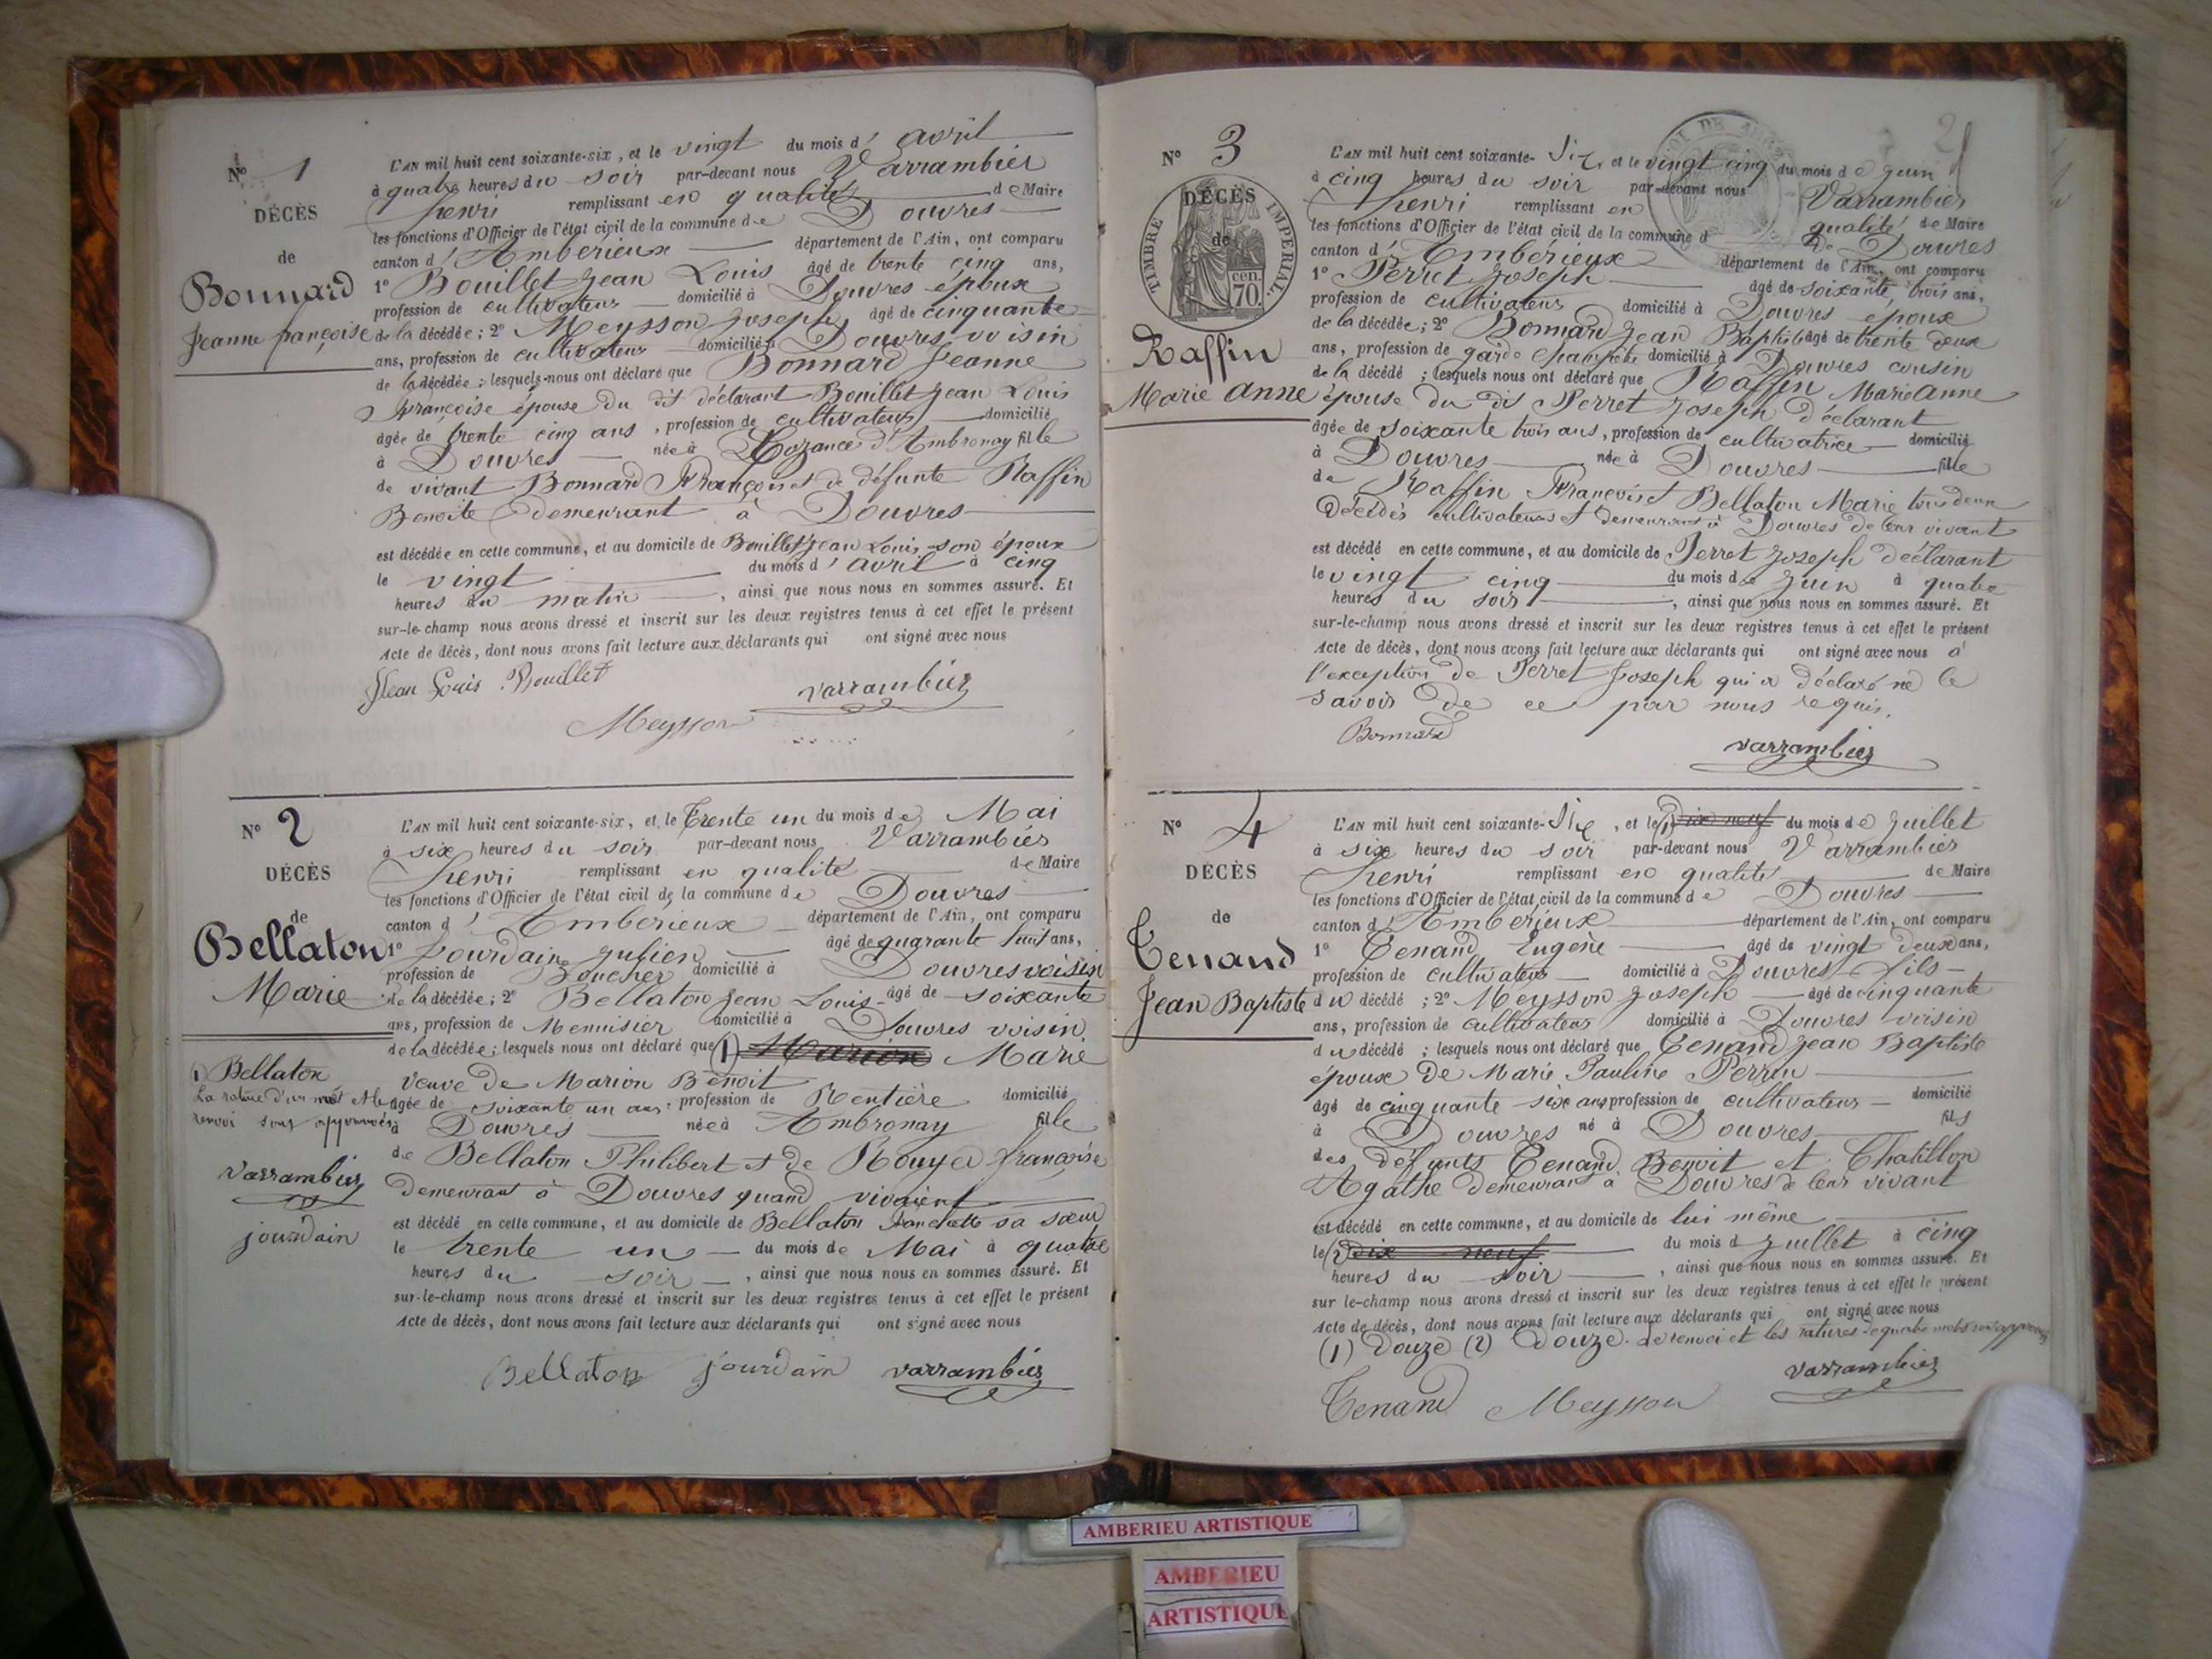 N° 1
DÉCÈS
de
Bonnard
Jeanne françoise
L'AN mil huit cent soixante-six, et le vingt du mois d' avril
à quatre heures du soir par-devant nous Varrambier
henri remplissant en qualité de Maire
les fonctions d'Officier de l'état civil de la commune de Douvres
canton d' Ambérieux département de l'Ain, ont comparu
1° Bouillet Jean Louis âgé de trente cinq ans,
profession de cultivateur domicilié à Douvres époux
de la décédée; 2° Meysson Joseph, âgé de cinquante
ans, profession de cultivateur domicilié à Douvres voisin
de la décédée; lesquels nous ont déclaré que Bonnard Jeanne
françoise épouse du dit déclarant Bouillet Jean Louis
âgée de trente cinq ans, profession de cultivateur domicilié
à Douvres née à d'Ambronay fille
de vivant Bonnard François et de défunte Raffin
Benoite demeurant à Douvres
est décédée en cette commune, et au domicile de Bouillet Jean Louis son époux
le vingt du mois d' avril à cinq
heures du matin, ainsi que nous nous en sommes assuré. Et
sur-le-champ nous avons dressé et inscrit sur les deux registres tenus à cet effet le présent
Acte de décès, dont nous avons fait lecture aux déclarants qui ont signé avec nous
Jean Louis Bouillet
varrambier
Meysson
N° 2
DÉCÈS
de
Bellaton
Marie
1) Bellaton
La rature d'un mot et le
renvoi sont approuvés
varrambier
jourdain
L'AN mil huit cent soixante-six, et le Trente un du mois de Mai
à six heures du soir par-devant nous Varrambier
henri remplissant en qualité de Maire
les fonctions d'Officier de l'état civil de la commune de Douvres
canton d' Ambérieux département de l'Ain, ont comparu
1° Jourdain Julien âgé de quarante huit ans,
profession de Boucher domicilié à Douvres voisin
de la décédée; 2° Bellaton Jean Louis âgé de soixante
ans, profession de Menuisier domicilié à Douvres voisin
de la décédée; lesquels nous ont déclaré que (1) Marion Marie
veuve de Marion Benoit
âgée de soixante un ans, profession de Rentière domicilié
à Douvres née à Ambronay fille
de Bellaton Philibert et de Rouyer françoise
demeurant à Douvres quand vivaient
est décédé en cette commune, et au domicile de Bellaton sa sœur
le trente un du mois de Mai à quatre
heures du soir, ainsi que nous nous en sommes assuré. Et
sur-le-champ nous avons dressé et inscrit sur les deux registres tenus à cet effet le présent
Acte de décès, dont nous avons fait lecture aux déclarants qui ont signé avec nous
Bellaton jourdain varrambier
2
N° 3
DÉCÈS
de
TIMBRE IMPÉRIAL
70 cen.
Raffin
Marie Anne
L'AN mil huit cent soixante-Six, et le vingt cinq du mois de Juin
à cinq heures du soir par-devant nous Varrambier
henri remplissant en qualité de Maire
les fonctions d'Officier de l'état civil de la commune de Douvres
canton d' Ambérieux département de l'Ain, ont comparu
1° Perret Joseph âgé de soixante trois ans,
profession de cultivateur domicilié à Douvres époux
de la décédée; 2° Bonnard Jean Baptiste âgé de trente deux
ans, profession de garde champêtre domicilié à Douvres cousin
de la décédé; lesquels nous ont déclaré que Raffin Marie Anne
épouse du dit Perret Joseph déclarant
âgée de soixante trois ans, profession de cultivatrice domicilié
à Douvres née à Douvres fille
de Raffin François et Bellaton Marie tous deux
décédés cultivateurs et demeurant à Douvres de leur vivant
est décédé en cette commune, et au domicile de Perret Joseph déclarant
le vingt cinq du mois de Juin à quatre
heures du soir, ainsi que nous nous en sommes assuré. Et
sur-le-champ nous avons dressé et inscrit sur les deux registres tenus à cet effet le présent
Acte de décès, dont nous avons fait lecture aux déclarants qui ont signé avec nous à
l'exception de Perret Joseph qui a déclaré ne le
savoir de ce par nous requis.
Bonnard
varrambier
N° 4
DÉCÈS
de
Tenand
Jean Baptiste
L'AN mil huit cent soixante-Six, et le (1) Dix neuf du mois de Juillet
à six heures du soir par-devant nous Varrambier
henri remplissant en qualité de Maire
les fonctions d'Officier de l'état civil de la commune de Douvres
canton d' Ambérieux département de l'Ain, ont comparu
1° Tenand Eugène âgé de vingt deux ans,
profession de cultivateur domicilié à Douvres fils
du décédé; 2° Meysson Joseph âgé de cinquante
ans, profession de cultivateur domicilié à Douvres voisin
du décédé; lesquels nous ont déclaré que Tenand Jean Baptiste
époux de Marie Pauline Perrin
âgé de cinquante six ans profession de cultivateur domicilié
à Douvres né à Douvres fils
des défunts Tenand Benoit et Chatillon
Agathe demeurant à Douvres de leur vivant
est décédé en cette commune, et au domicile de lui même
le (2) dix neuf du mois d Juillet à cinq
heures du soir, ainsi que nous nous en sommes assuré. Et
sur le-champ nous avons dressé et inscrit sur les deux registres tenus à cet effet le présent
Acte de décès, dont nous avons fait lecture aux déclarants qui ont signé avec nous
(1) Douze (2) Douze. de renvoi et les ratures de quatre mots
varrambier
Tenand Meysson
AMBERIEU ARTISTIQUE
AMBERIEU
ARTISTIQUE